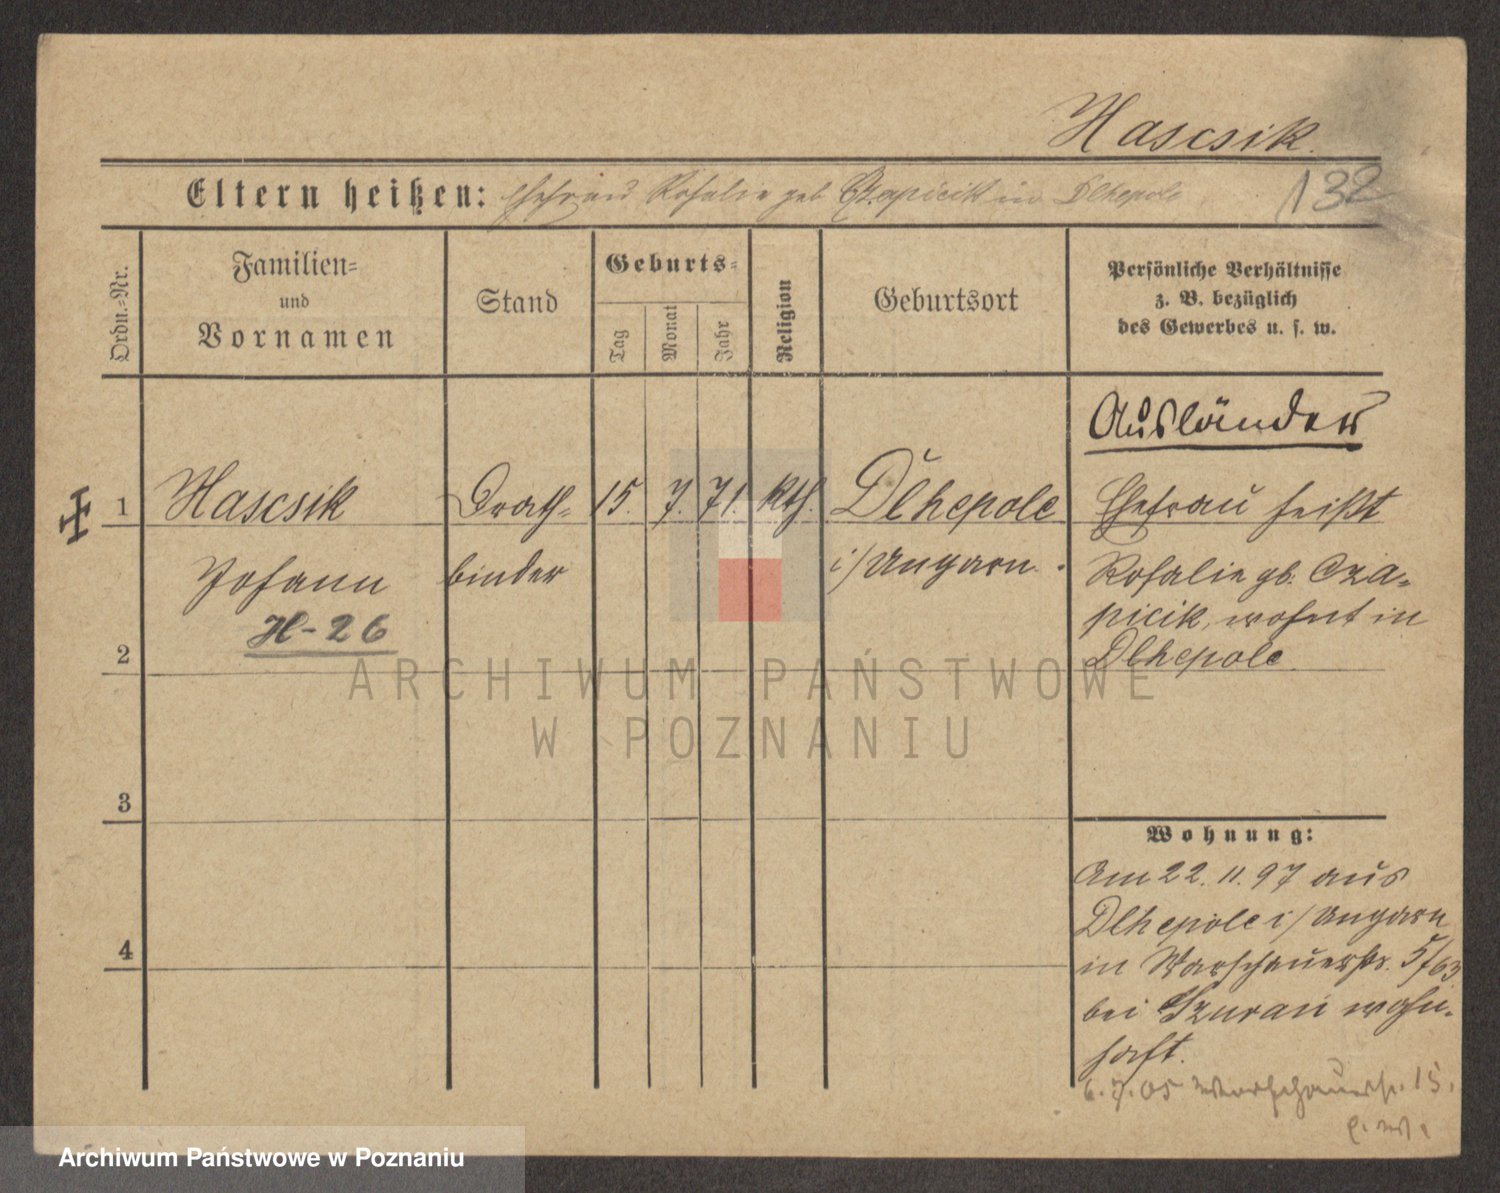 Hascsik.
Eltern heißen: Ehefrau Rosalie geb Czapicik in Dlhepole
132
Ordn.-Nr.
Familien-
und
Vornamen
Stand
Geburts-
Tag
Monat
Jahr
Religion
Geburtsort
Persönliche Verhältnisse
z. B. bezüglich
des Gewerbes u. s. w.
Ausländer
1 Hascsik Drath- 15. 7. 71. kth. Dlhepole Ehefrau heißt
Johann binder i/Ungarn. Rosalie gb. Cza-
H-26 picik, wohnt in
2 Dlhepole.
3
Wohnung:
Am 22. 11. 97 aus
Dlhepole i/Ungarn
4
in Warschauerstr. 5/63
bei wohn-
haft.
6.7.05 Warschauerstr. 15.
ARCHIWUM PAŃSTWOWE
W POZNANIU
Archiwum Państwowe w Poznaniu